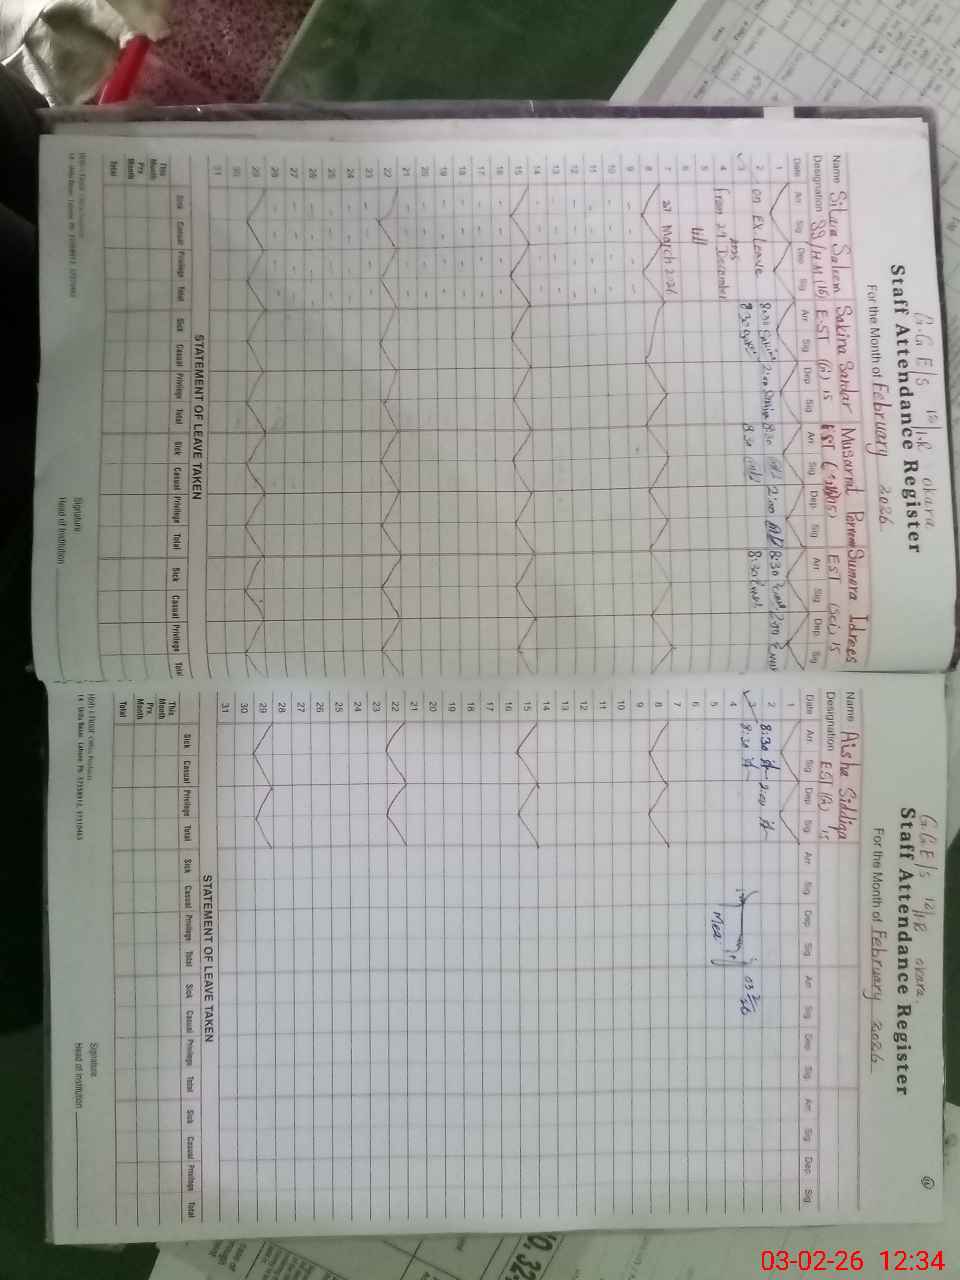 G.G E/S 12/1.R okara
Staff Attendance Register
For the Month of February 2026
Name Sitara Saleem Sakina Sardar Musarrat Parveen Sumera Idrees
Designation SS/H.M (16) E.ST 15 EST EST (Sci) 15
Date Arr Sig Dep Sig Arr Sig Dep Sig Arr Sig Dep Sig Arr Sig Dep Sig
1
2 on Ex. Leave 8:30 2:00 8:30 2:00 8:30 2:00
3 8:30 8:30 8:30
4 From 29 December 2025
5 till
6
7 27 March 2026
8
9
10
11
12
13
14
15
16
17
18
19
20
21
22
23
24
25
26
27
28
29
30
31
STATEMENT OF LEAVE TAKEN
Sick Casual Privilege Total Sick Casual Privilege Total Sick Casual Privilege Total Sick Casual Privilege Total
This Month
Prv. Month
Total
Signature
Head of Institution
G.G E/S 12/1R okara
Staff Attendance Register
For the Month of February 2026
Name Aisha Siddiqa
Designation EST (A) 15
Date Arr Sig Dep Sig Arr Sig Dep Sig Arr Sig Dep Sig Arr Sig Dep Sig
1
2 8:30 2:00
3 8:30
4
5
6
7
8
9
10
11
12
13
14
15
16
17
18
19
20
21
22
23
24
25
26
27
28
29
30
31
STATEMENT OF LEAVE TAKEN
Sick Casual Privilege Total Sick Casual Privilege Total Sick Casual Privilege Total Sick Casual Privilege Total
This Month
Prv. Month
Total
Signature
Head of Institution
03-02-26 12:34